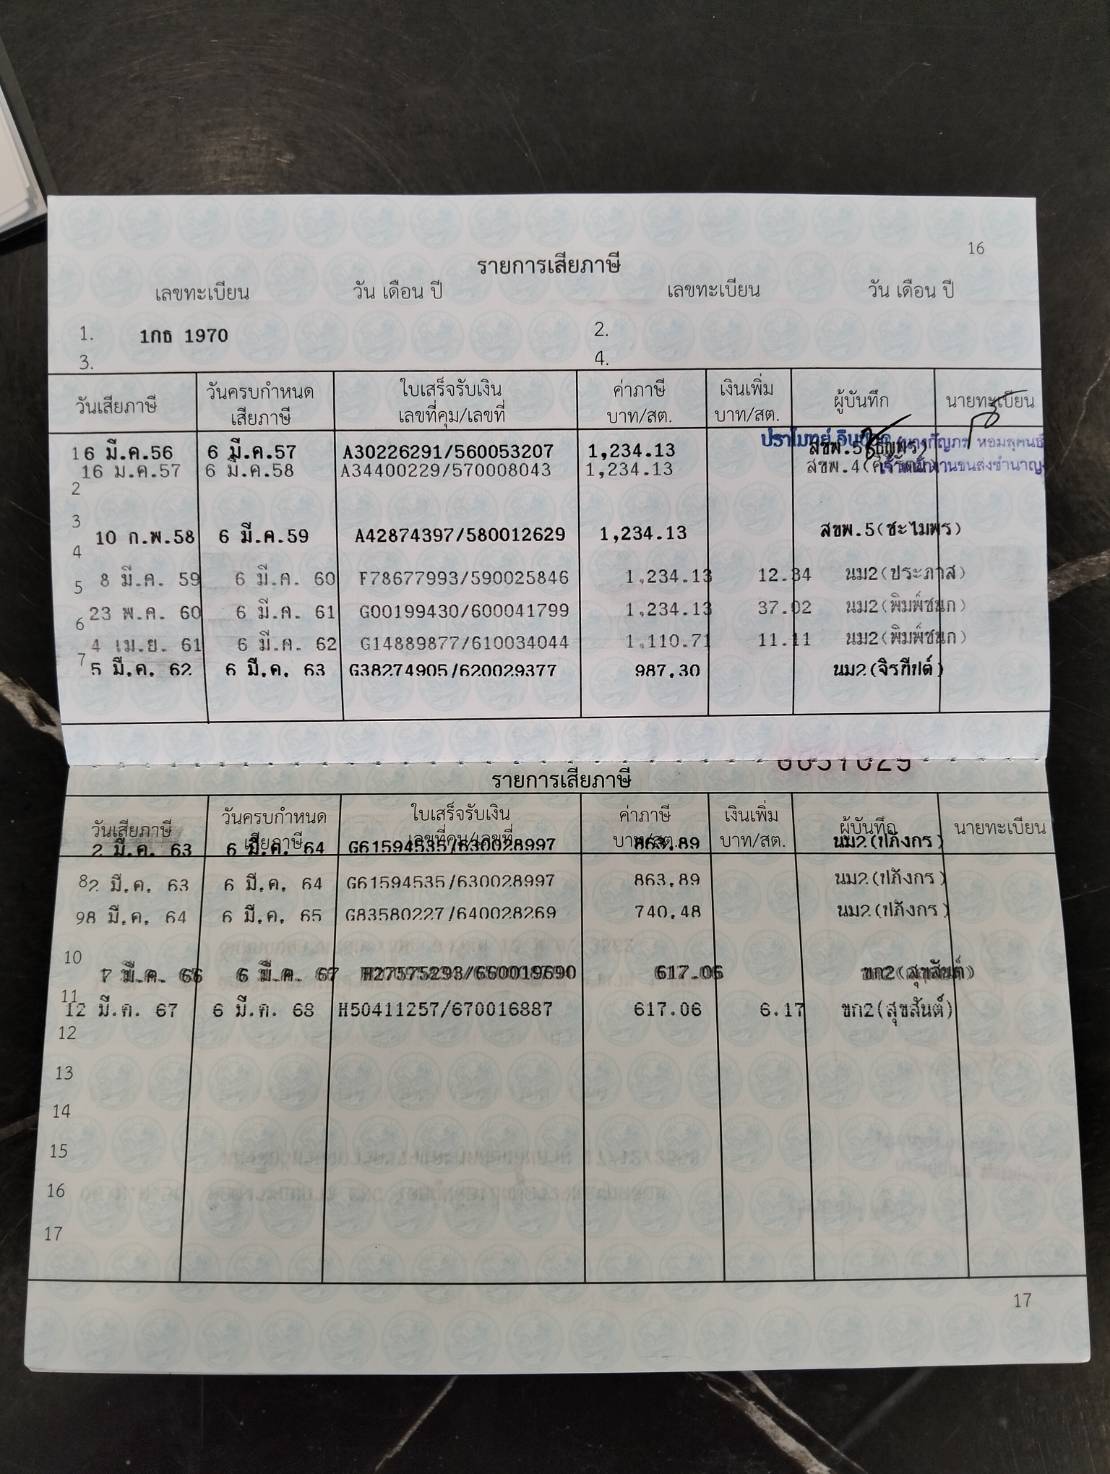 16
รายการเสียภาษี
เลขทะเบียน วัน เดือน ปี เลขทะเบียน วัน เดือน ปี
1. 1กธ 1970 2.
3. 4.
วันเสียภาษี วันครบกำหนด เสียภาษี ใบเสร็จรับเงิน เลขที่คุม/เลขที่ ค่าภาษี บาท/สต. เงินเพิ่ม บาท/สต. ผู้บันทึก นายทะเบียน
16 มี.ค.56 6 มี.ค.57 A30226291/560053207 1,234.13 สขพ.5
16 ม.ค.57 6 มี.ค.58 A34400229/570008043 1,234.13 สขพ.4
2
3
10 ก.พ.58 6 มี.ค.59 A42874397/580012629 1,234.13 สขพ.5(ชะไมพร)
4
5 8 มี.ค. 59 6 มี.ค. 60 F78677993/590025846 1,234.13 12.34 นม2(ประภาส)
6 23 พ.ค. 60 6 มี.ค. 61 G00199430/600041799 1,234.13 37.02 นม2(พิมพ์ชนก)
4 เม.ย. 61 6 มี.ค. 62 G14889877/610034044 1,110.71 11.11 นม2(พิมพ์ชนก)
7 5 มี.ค. 62 6 มี.ค. 63 G38274905/620029377 987.30 นม2(จิรกีปต์)
รายการเสียภาษี
วันเสียภาษี วันครบกำหนด เสียภาษี ใบเสร็จรับเงิน เลขที่คุม/เลขที่ ค่าภาษี บาท/สต. เงินเพิ่ม บาท/สต. ผู้บันทึก นายทะเบียน
2 มี.ค. 63 6 มี.ค. 64 G61594535/630028997 863.89 นม2(ปภังกร)
8 2 มี.ค. 63 6 มี.ค. 64 G61594535/630028997 863.89 นม2(ปภังกร)
9 8 มี.ค. 64 6 มี.ค. 65 G83580227/640028269 740.48 นม2(ปภังกร)
10
7 มี.ค. 66 6 มี.ค. 67 617.06 ขก2(สุขสันต์)
11
12 มี.ค. 67 6 มี.ค. 68 H50411257/670016887 617.06 6.17 ขก2(สุขสันต์)
12
13
14
15
16
17
17